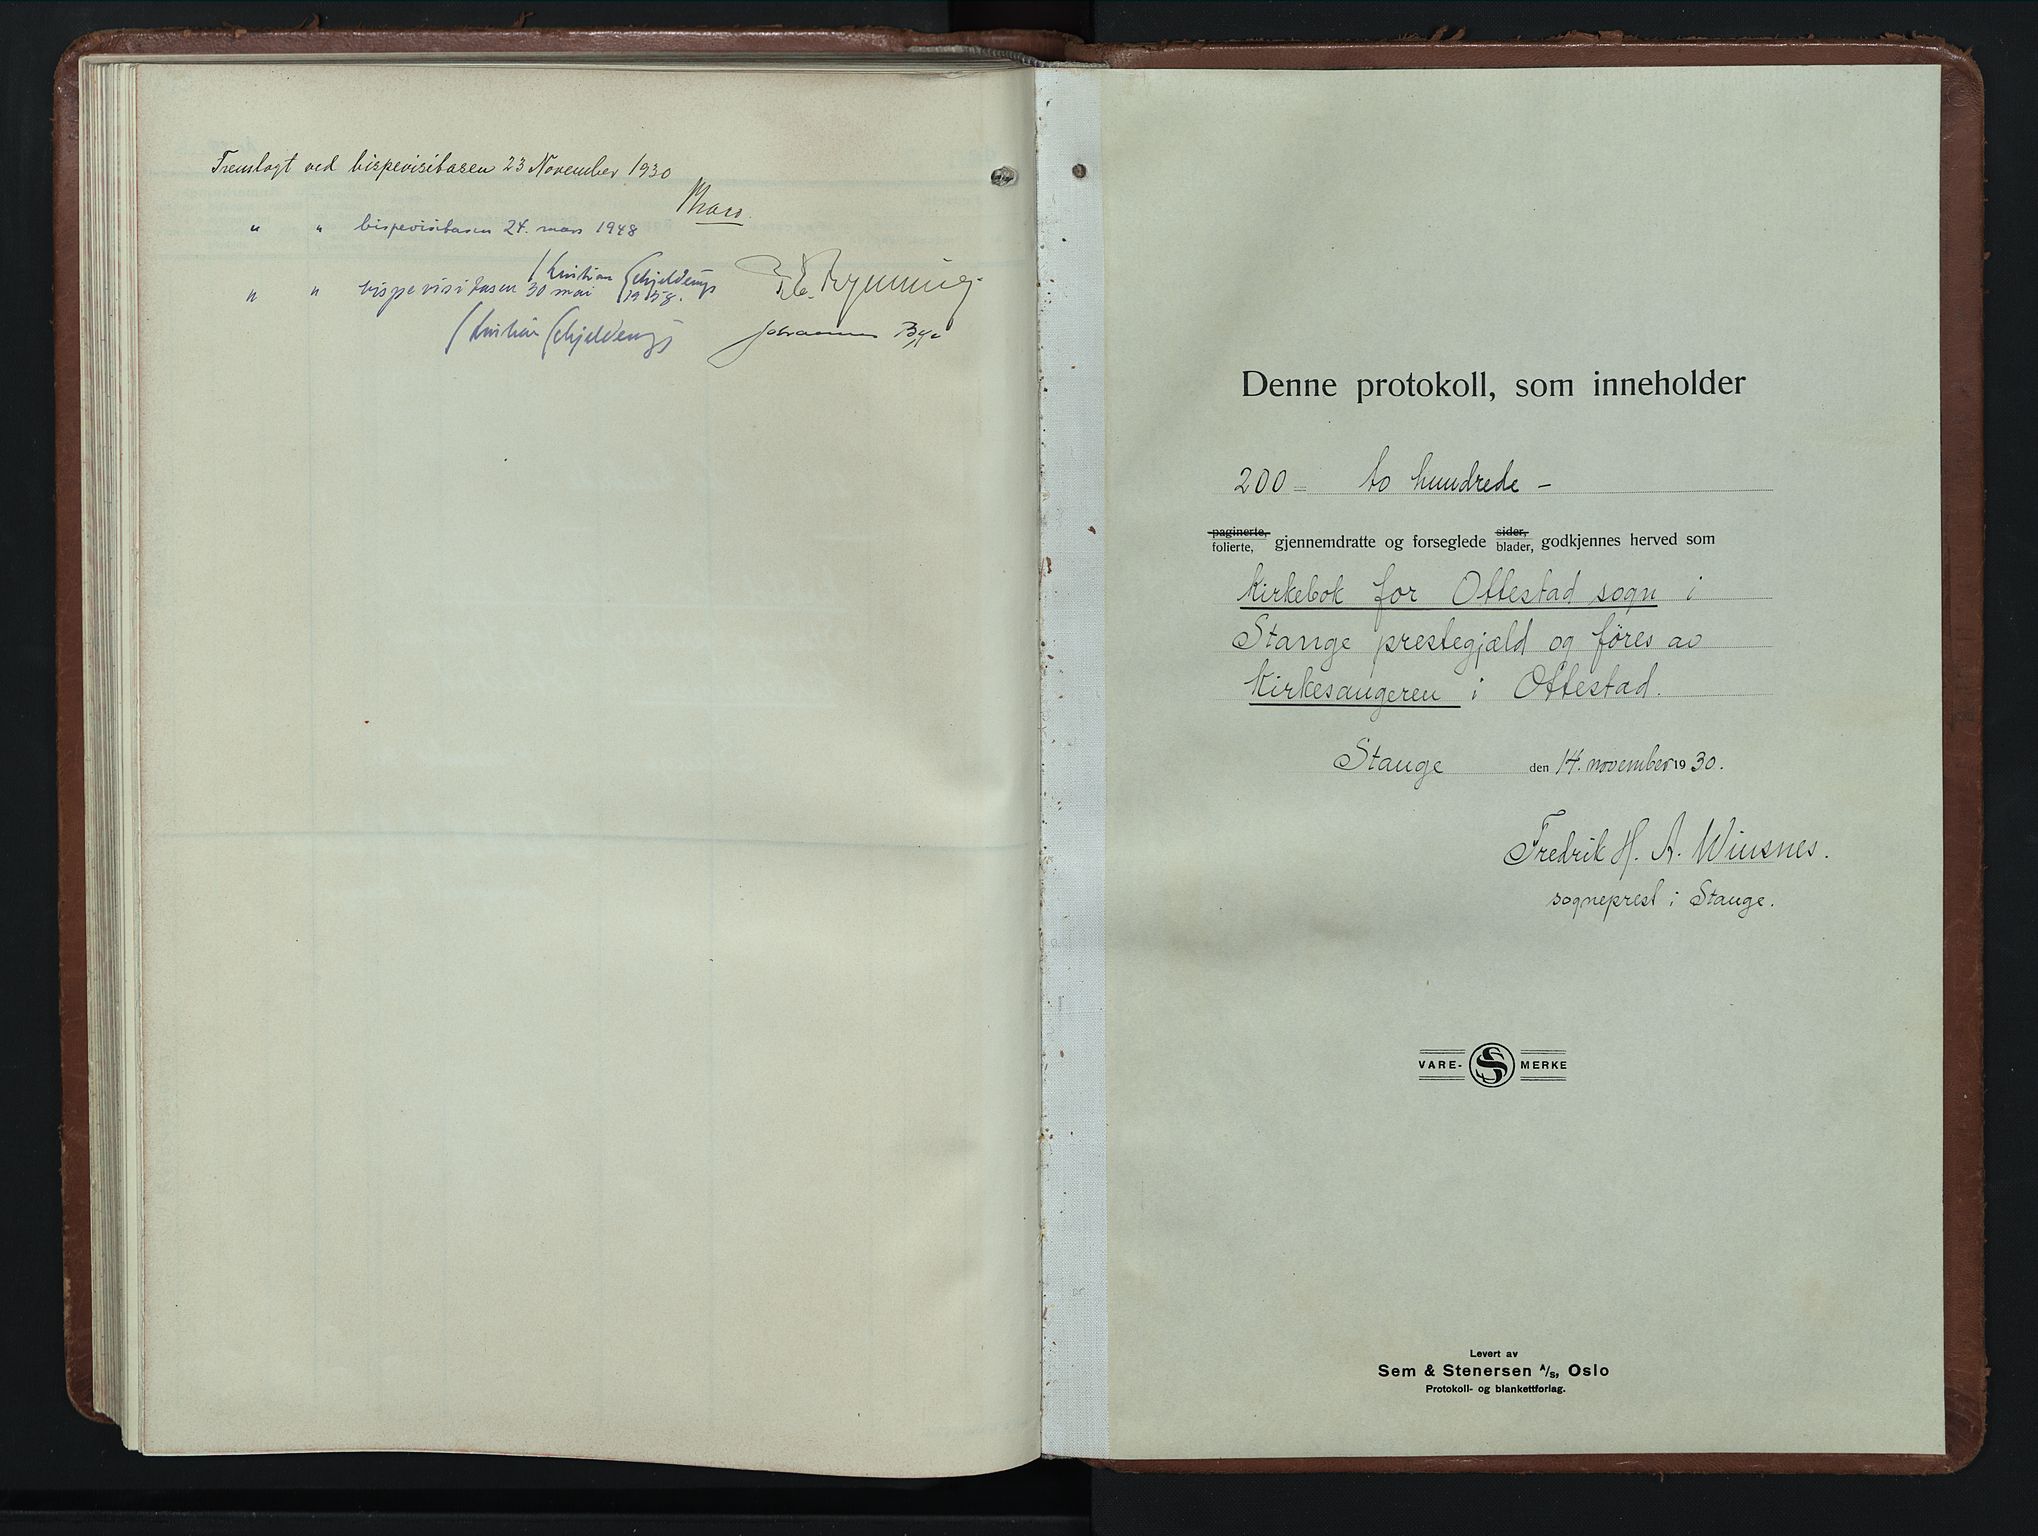 Fremlagt ved bispevisitasen 23 November 1930
" " bispevisitasen 24. mars 1948
Kristian Schjelderup
" " bispevisitasen 30 mai 1958.
Kristian Schjelderup Johannes
Denne protokoll, som inneholder
200 = to hundrede -
paginerte, folierte, gjennemdratte og forseglede sider, blader, godkjennes herved som
Kirkebok for Ottestad sogn i
Stange prestegjæld og føres av
kirkesangeren i Ottestad.
Stange den 14. november 1930.
Fredrik H. A. Winsnes.
sogneprest i Stange.
VARE- S MERKE
Levert av
Sem & Stenersen A/S, Oslo
Protokoll- og blankettforlag.